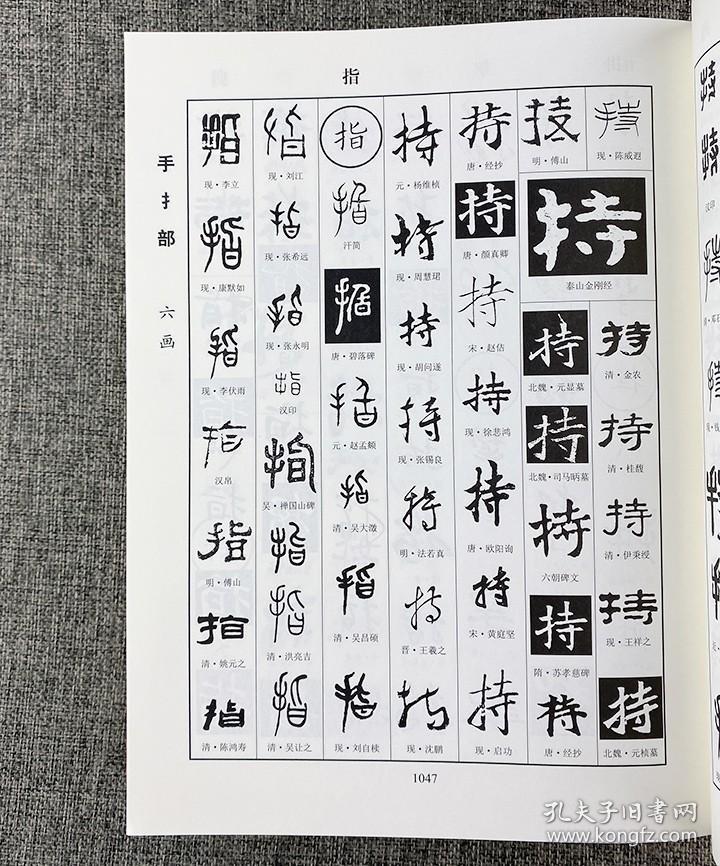 指
手扌部
六画
指
现·李立
指
现·康默如
指
现·李伏雨
指
汉帛
指
明·傅山
指
清·姚元之
指
清·陈鸿寿
指
现·刘江
指
现·张希远
指
现·张永明
指
汉印
指
吴·禅国山碑
指
清·洪亮吉
指
清·吴让之
指
指
汗简
指
唐·碧落碑
指
元·赵孟頫
指
清·吴大澂
指
清·吴昌硕
指
现·刘自椟
持
元·杨维桢
持
现·周慧珺
持
现·胡问遂
持
现·张锡良
持
明·法若真
持
晋·王羲之
持
现·沈鹏
持
唐·经抄
持
唐·颜真卿
持
宋·赵佶
持
现·徐悲鸿
持
唐·欧阳询
持
宋·黄庭坚
持
现·启功
持
明·傅山
持
现·陈威遐
持
泰山金刚经
持
北魏·元显墓
持
北魏·司马昞墓
持
六朝碑文
持
隋·苏孝慈碑
持
唐·经抄
持
清·金农
持
清·桂馥
持
清·伊秉绶
持
现·王祥之
持
北魏·元桢墓
1047
孔夫子旧书网
www.kongfz.com